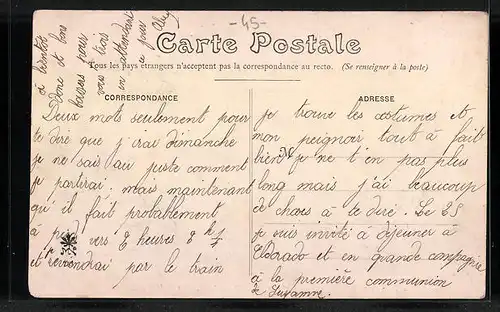 -45-
Carte Postale
Tous les pays étrangers n'acceptent pas la correspondance au recto. (Se renseigner à la poste)
CORRESPONDANCE
Deux mots seulement pour
te dire que j'irai dimanche
je ne sais au juste comment
je partirai; mais maintenant
qu'il fait probablement
à vers 8 heures et
et reviendrai par le train
ADRESSE
je trouve les costumes et
mon peignoir tout à fait
bien je ne t'en pas plus
long mais j'ai beaucoup
de choses à te dire. Le 25
je suis invité à déjeuner à
Eldorado et en grande compagnie
à la première communion
de Suzanne.
à bientôt
donc et bons
baisers pour
vous trois
en attendant